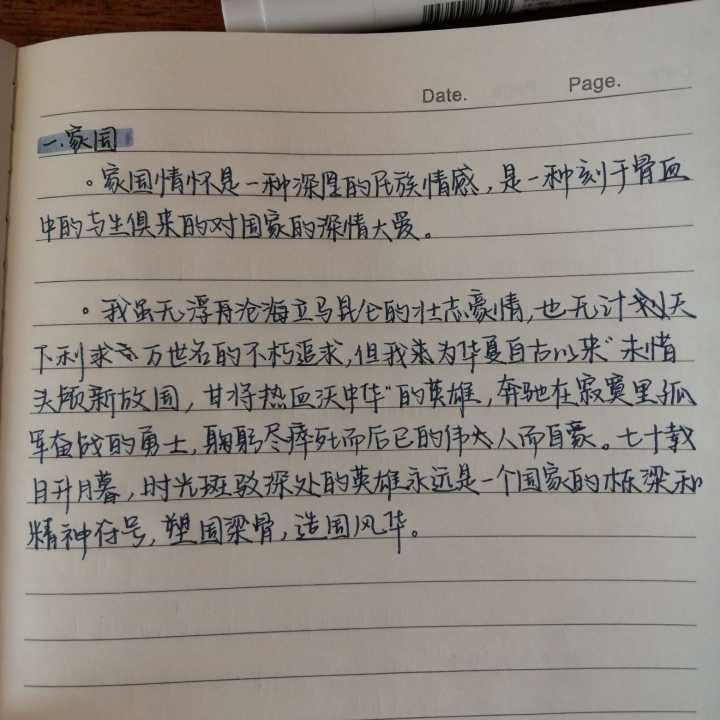 Date. Page.
一.家国
。家国情怀是一种深厚的民族情感,是一种刻于骨血
中的与生俱来的对国家的深情大爱。
。我虽无浮舟沧海立马昆仑的壮志豪情,也无计划天
下利求万世名的不朽追求,但我来为华夏自古以来"未惜
头颅新故国,甘将热血沃中华"的英雄,奔驰在寂寞里孤
军奋战的勇士,鞠躬尽瘁死而后已的伟大人而自豪。七十载
日升月暮,时光斑驳深处的英雄永远是一个国家的栋梁和
精神符号,塑国梁骨,造国风华。